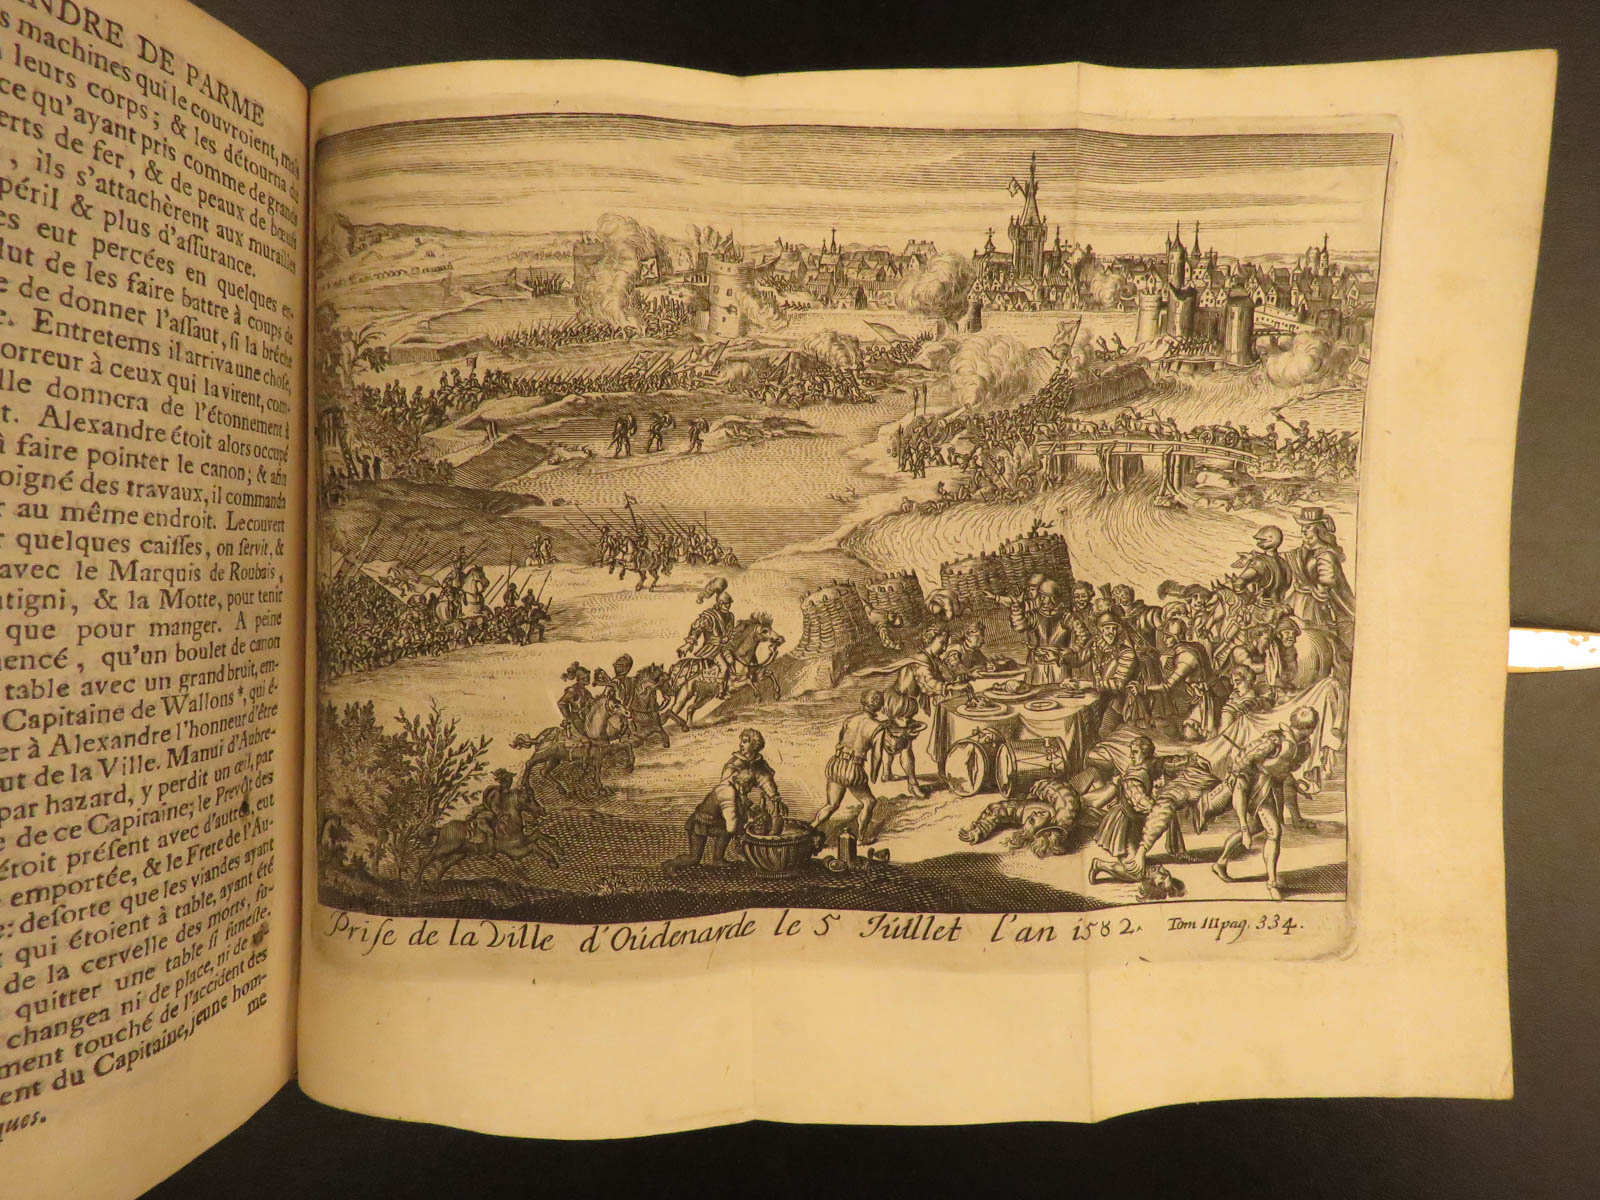 NDRE DE PARME
s machines qui le couvroient, mais
leurs corps; & les détourna du
ce qu'ayant pris comme de grands
erts de fer, & de peaux de bœufs
, ils s'attachèrent aux murailles
péril & plus d'assurance.
es eut percées en quelques en-
lut de les faire battre à coups de
e de donner l'assaut, si la brêche
e. Entretems il arriva une chose,
orreur à ceux qui la virent, com-
lle donnera de l'étonnement à
t. Alexandre étoit alors occupé
à faire pointer le canon; & afin
oigné des travaux, il commanda
r au même endroit. Le couvert
r quelques caisses, on servit, &
avec le Marquis de Roubais,
ntigni, & la Motte, pour tenir
que pour manger. A peine
mencé, qu'un boulet de canon
table avec un grand bruit, em-
Capitaine de Wallons*, qui é-
er à Alexandre l'honneur d'être
ut de la Ville. Manui d'Aubre-
par hazard, y perdit un œil, par
e de ce Capitaine; le Prevôt des
étoit présent avec d'autres, eut
emportée, & le Frere de l'Au-
e: desorte que les viandes ayant
qui étoient à table, ayant été
de la cervelle des morts, fu-
quitter une table si funeste.
changea ni de place, ni de vi-
ment touché de l'accident des
ent du Capitaine, jeune hom-
me
ques.
Prise de la Ville d'Oudenarde le 5 Juillet l'an 1582. Tom III pag. 334.